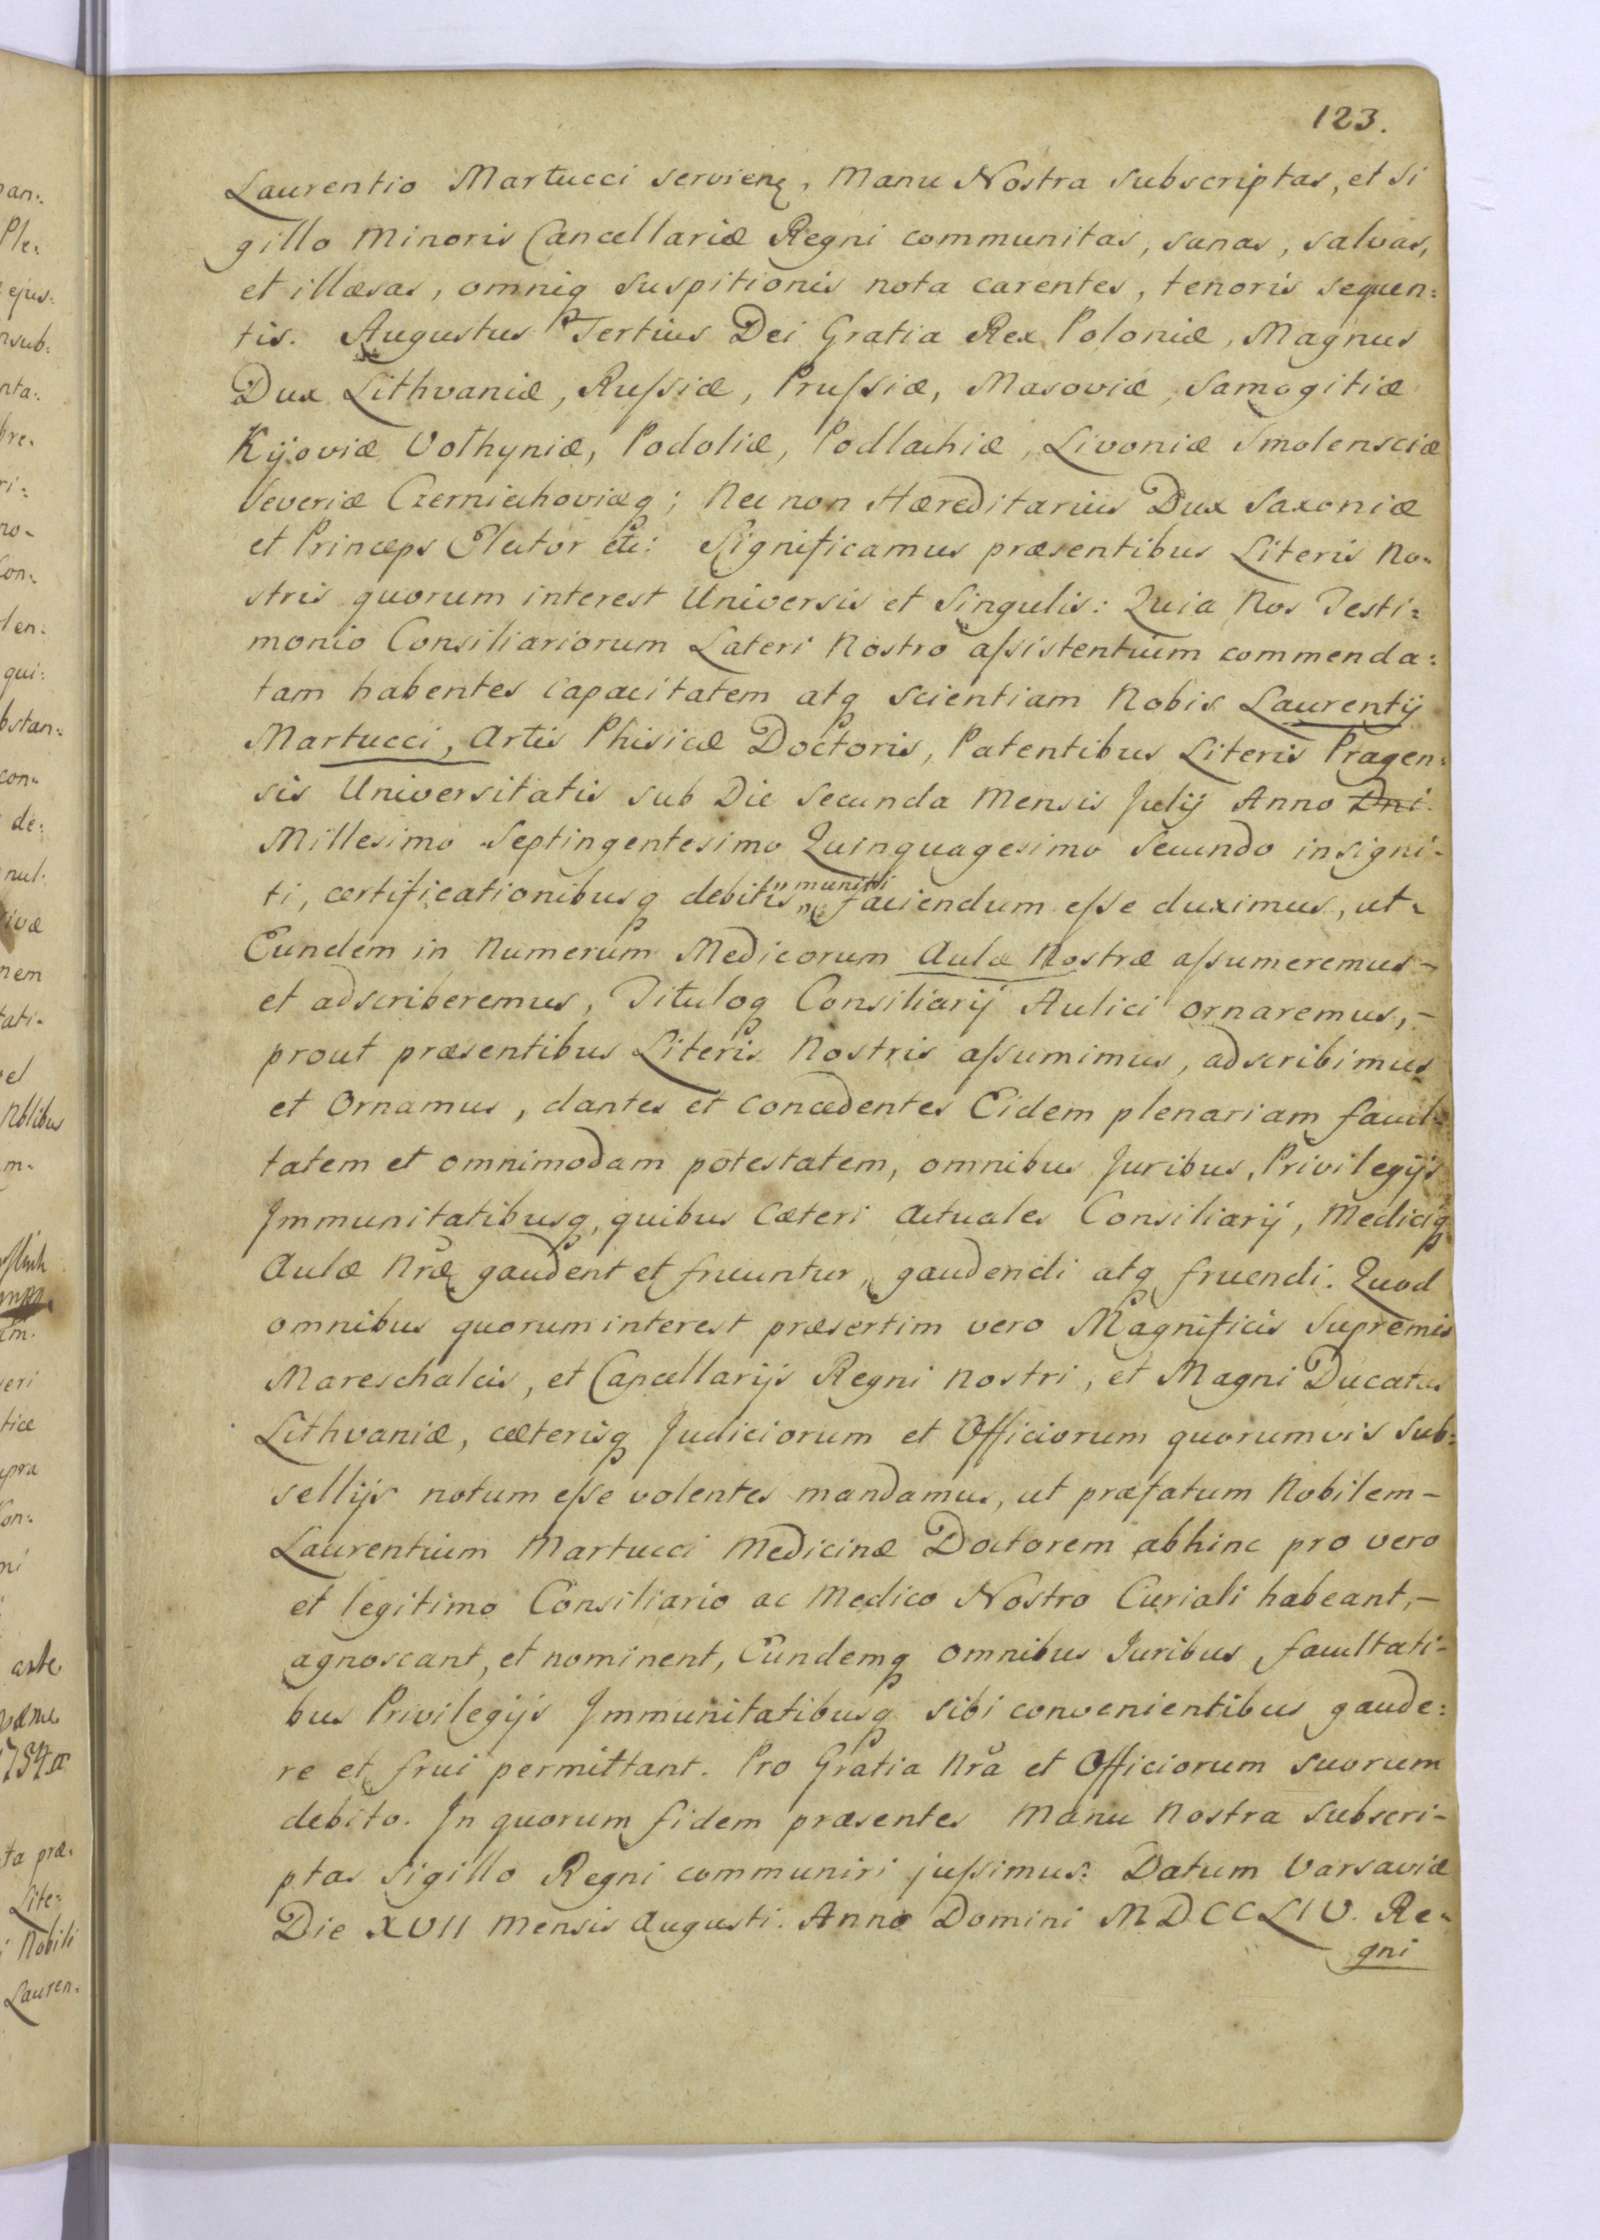 123.
Laurentio Martucci servien, Manu Nostra subscriptas, et Si
gillo Minoris Cancellariæ Regni communitas, sanas, salvas,
et illæsas, omniq suspitionis nota carentes, tenoris sequen:
tis. Augustus Tertius Dei Gratia Rex Poloniæ, Magnus
Dux Lithvaniæ, Ruſsiæ, Pruſsiæ, Masoviæ, Samogitiæ
Kijoviæ Volhyniæ, Podoliæ, Podlachiæ, Livoniæ Smolensciæ
Severiæ Czerniechoviæq; Nec non Hæreditarius Dux Saxoniæ
et Princeps Elector etc: Significamus præsentibus Literis No-
stris quorum interest Universis et Singulis: Quia Nos Testi:
monio Consiliariorum Lateri Nostro aſsistentium commenda:
tam habentes capacitatem atq scientiam Nobis Laurentij
Martucci, Artis Phisicæ Doctoris, Patentibus Literis Pragen:
sis Universitatis sub Die Secunda Mensis Julij Anno Dni
Millesimo Septingentesimo Quinquagesimo Secundo insigni-
ti, certificationibusq debitis "muniti faciendum eſse duximus, ut-
Eundem in Numerum Medicorum Aulæ Nostræ aſsumeremus-
et adscriberemus, Tituloq Consiliarij Aulici ornaremus,-
prout præsentibus Literis Nostris aſsumimus, adscribimus
et Ornamus, dantes et concedentes Eidem plenariam facul-
tatem et omnimodam potestatem, omnibus Juribus, Privilegijs
Immunitatibusq, quibus Cæteri Actuales Consiliarij, Mediciq
Aulæ Nræ gaudent et fruuntur, gaudendi atq fruendi. Quod
omnibus quorum interest præsertim vero Magnificis Supremis
Mareschalcis, et Cancellarijs Regni Nostri, et Magni Ducatus
Lithvaniæ, cæterisq Judiciorum et Officiorum quorumvis Sub:
sellijs notum eſse volentes mandamus, ut præfatum Nobilem-
Laurentium Martucci Medicinæ Doctorem abhinc pro vero
et legitimo Consiliario ac Medico Nostro Curiali habeant,-
agnoscant, et nominent, Eundemq omnibus Juribus, facultati-
bus Privilegijs Immunitatibusq sibi convenientibus gaude:
re et frui permittant. Pro Gratia Nra et Officiorum suorum
debito. In quorum fidem præsentes Manu Nostra Subscri-
ptas Sigillo Regni communiri juſsimus: Datum Varsaviæ
Die XVII Mensis Augusti. Anno Domini MDCCLIV. Re-
gni